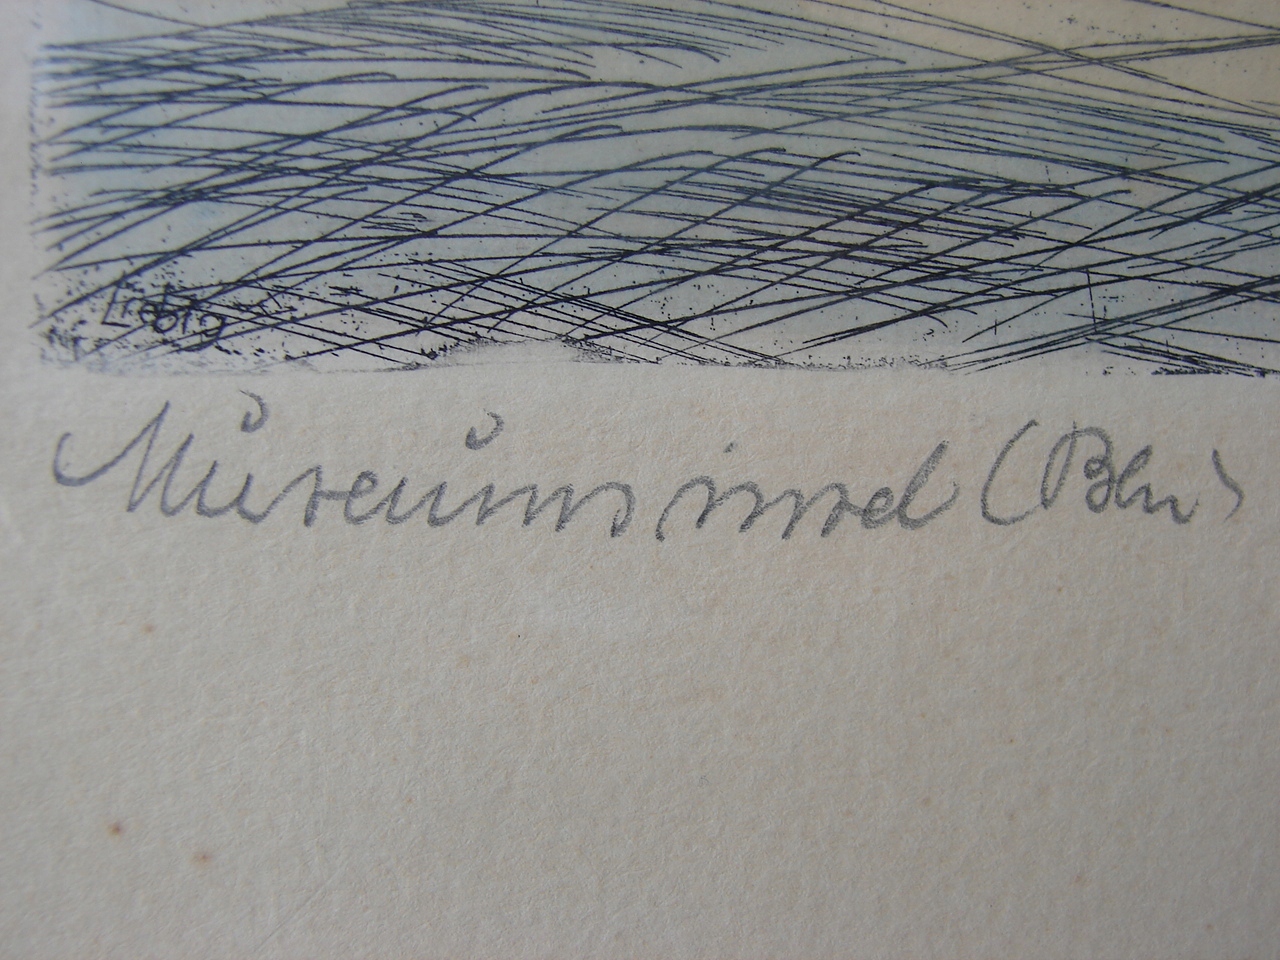 Liebig
Museumsinsel (Bln)